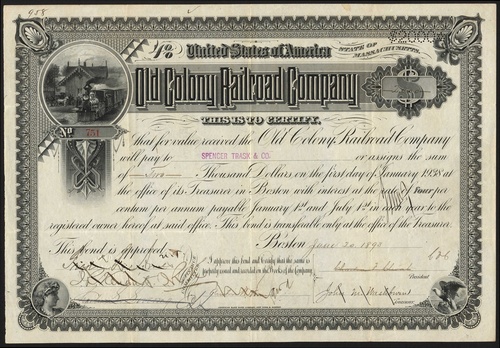 958
4%
United States of America
$2000
STATE OF
MASSACHUSETTS.
Old Colony Railroad Company
THIS IS TO CERTIFY,
No 751
that for value received the Old Colony Railroad Company
will pay to SPENCER TRASK & CO. or assigns the sum
of Two Thousand Dollars on the first day of January 1938 at
the office of its Treasurer in Boston with interest at the rate of Four per
centum per annum payable January 1st and July 1st in each year to the
registered owner hereof at said office. This bond is transferable only at the office of the Treasurer.
Boston June 20 1898
This bond is approved.
I approve this bond and Certify that the same is
properly issued and recorded on the Books of the Company.
President
John M. Washburn
Treasurer